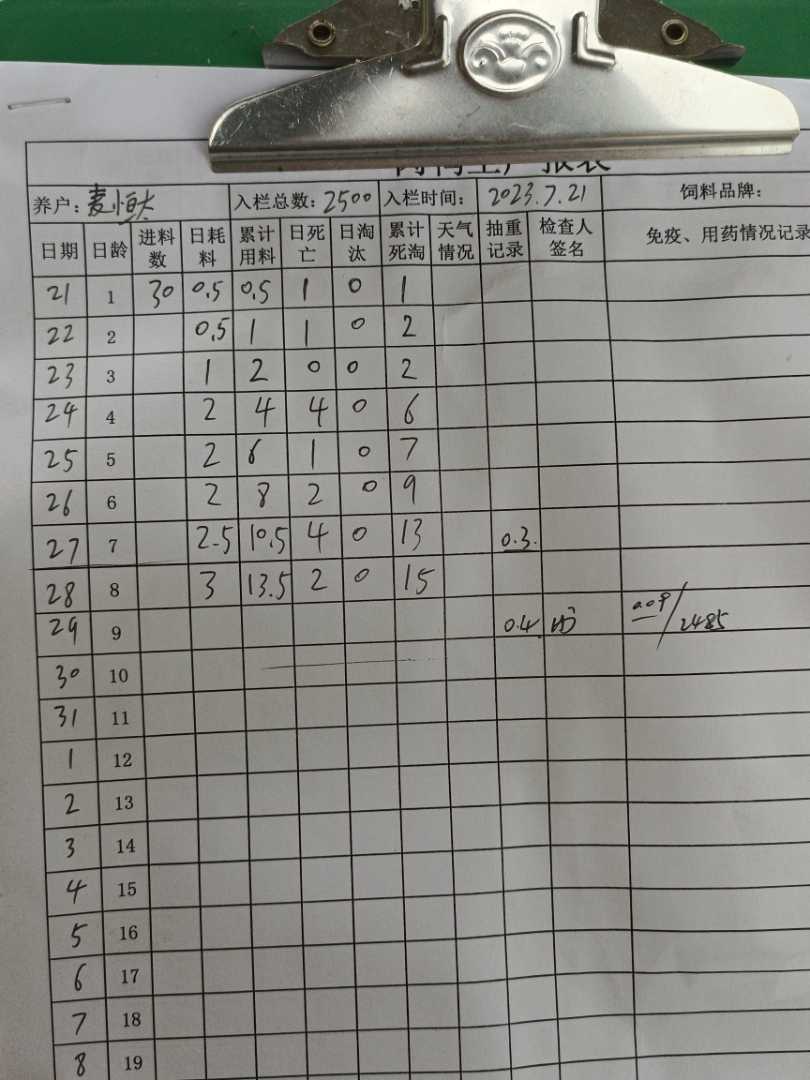 养户：麦恒大 入栏总数：2500 入栏时间：2023.7.21 饲料品牌：
日期 日龄 进料数 日耗料 累计用料 日死亡 日淘汰 累计死淘 天气情况 抽重记录 检查人签名 免疫、用药情况记录
21 1 30 0.5 0.5 1 0 1
22 2 0.5 1 1 0 2
23 3 1 2 0 0 2
24 4 2 4 4 0 6
25 5 2 6 1 0 7
26 6 2 8 2 0 9
27 7 2.5 10.5 4 0 13 0.3.
28 8 3 13.5 2 0 15
29 9 0.4 2485
30 10
31 11
1 12
2 13
3 14
4 15
5 16
6 17
7 18
8 19